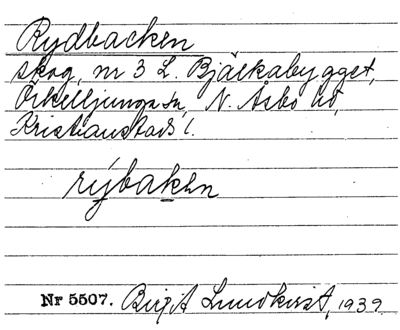 Rydbacken
skog, nr 3 L. Bjälkabygget,
Örkelljunga sn, N. Åsbo hd,
Kristianstads l.
rýbakən
Nr 5507. Birgit Lundkvist, 1939.